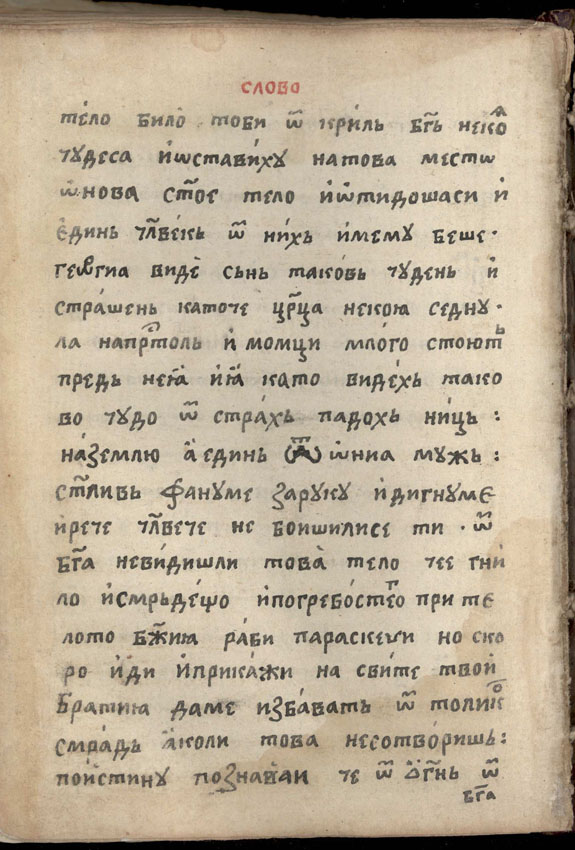 СЛОВО
тѣло било̀ тоби ѿ крѝль бг҃ъ некоѧ̑
чꙋдеса и҆ѡставѝхꙋ на това место
ѡ҆нова ст҃ое тело и҆ѿтидошаси и҆
є҆динь чл҃векь ѿ нѝхь и҆мемꙋ беше·
геѡргиа видѐ сьнь таковь чꙋдень и҆
стра́шень каточе цр҃ца некоꙗ седнꙋ·
ла напрⷭ҇толь и҆ момци мло́го стоютъ
предь неꙗ̀ и҆ꙗ̀ като видехь тако
во чꙋдо ѿ стра́хь падохь ниць :
на́землю а҆ единь ѿ ѡ҆ниа мꙋжь :
ст҃ливь фанꙋме зарꙋкꙋ и҆дигнꙋмє
и҆рече чл҃вече не боишилисе ти · ѿ
бг҃а неви́дишли това̀ тело чее гни́
ло и҆смрьде́ѱо и҆погребо́стегⷪ при тє
лото бж҃иꙗ ра́би параскеѵи но ско
ро и҆ди и҆прика́жи на свите твои҆
братиꙗ даме изба́вать ѿ толикⷪ
смра́дь а҆коли това несотво́ришь :
пои́стинꙋ познаваи че ѿ ѻ҆г҃нь ѿ
бг҃а